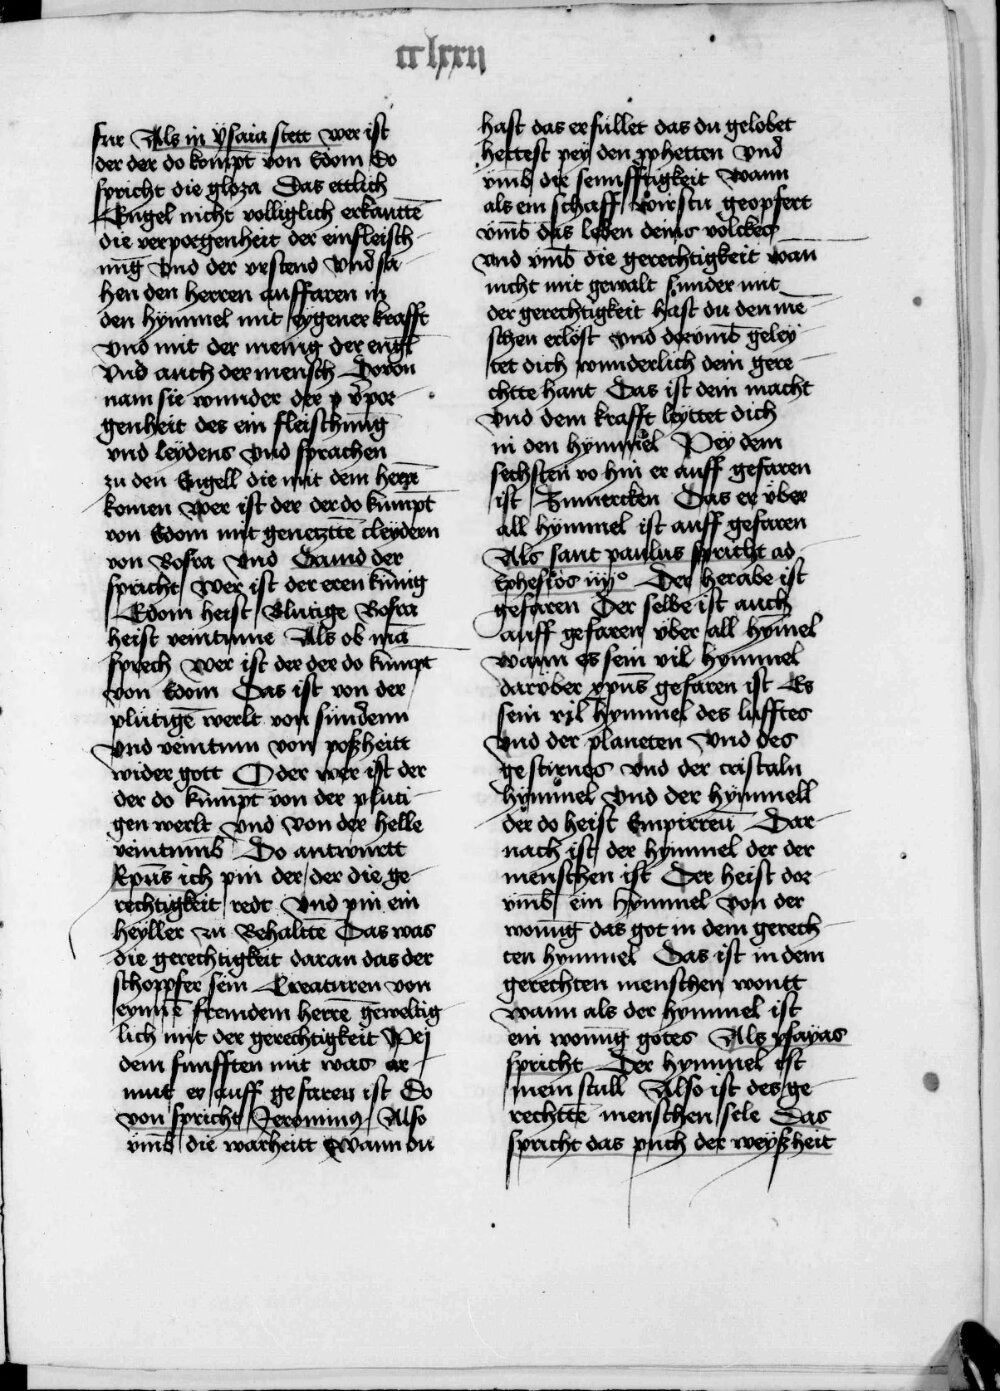 cclxxij
fur Als in ysaia stett wer ist
der der do kompt von Edom Do
spricht die gloza Das ettlich
Engel nicht volliglich erkanttē
die verporgenheit der einfleisch
nūg Vnd der vrstend Vnd sa
hen den herren auffaren in
den hymmel mit eygener krafft
Vnd mit der menig der engl
Vnd auch der mensch Dovon
nam sie wunder der v̄por
genheit des ein fleischnūg
vnd leydens Vnd sprachen
zu den Engell die mit dem herrē
komen wer ist der der do kumpt
von Edom mit genetzttē cleydern
von Bosra Vnd Dauid der
spricht wer ist der eren kunig
Edom heist Blutige Bosra
heist veintnme Als ob mā
sprech wer ist der der do kumpt
von Edom Das ist von der
plutigē werlt von sündenn
Vnd veintum von poßheitt
wider gott Oder wer ist der
der do kumpt von der pluti
gen werlt Vnd von der helle
veintumb Do antwurtt
Xpūs ich pin der der die ge
rechtigkeit redt Vnd pin ein
heyller zu Behalttē Das was
die gerechtigkeit daran das der
schoppfer sein Creaturen von
eynnē fremdem herrē geweltig
lich mit der gerechtigkeit Pej
dem funfften mit was ar
mut er auff gefaren ist Do
von spricht Jeronimus Also
vmb die warheitt Wann du
hast das erfullet das du gelobet
hettest pey den pphetten Vnd
vmb die sennfftigkeit wann
als ein schaff wirstu geopfert
vmb das leben deins volckes
vnd vmb die gerechtigkeit wān
nicht mit gewalt sunder mit
der gerechtigkeit hast du den mē
schen erlöst Vnd dorvmb geley
tet dich wunderlich dein gere
chtte hant Das ist dein macht
Vnd dem krafft leyttet dich
in den hymmel Pey dem
sechsten vo hin er auff gefaren
ist Zumercken Das er vber
all hymmel ist auff gefaren
Als sant paulus spricht ad
Ephesios iiijo Der herabe ist
gefaren Der selbe ist auch
auff gefaren vber all hymel
wann es sein vil hymmel
darvber xpūs gefaren ist Es
sein vil hymmel des lufftes
Vnd der planeten Vnd des
gestirnes Vnd der cristaln
hymmel Vnd der hymmell
der do heist Empirreū Dar
nach ist der hymmel der der
menschen ist Der heist dor
vmb ein hymmel von der
wonūg das got in dem gerech
ten hymmel Das ist in dem
gerechten menschen wontt
wann als der hymmel ist
ein wonūg gotes Als ysayas
spricht Der hymmel ist
mein stull Also ist des ge
rechttē menschen sele Das
spricht das puch der weyßheit